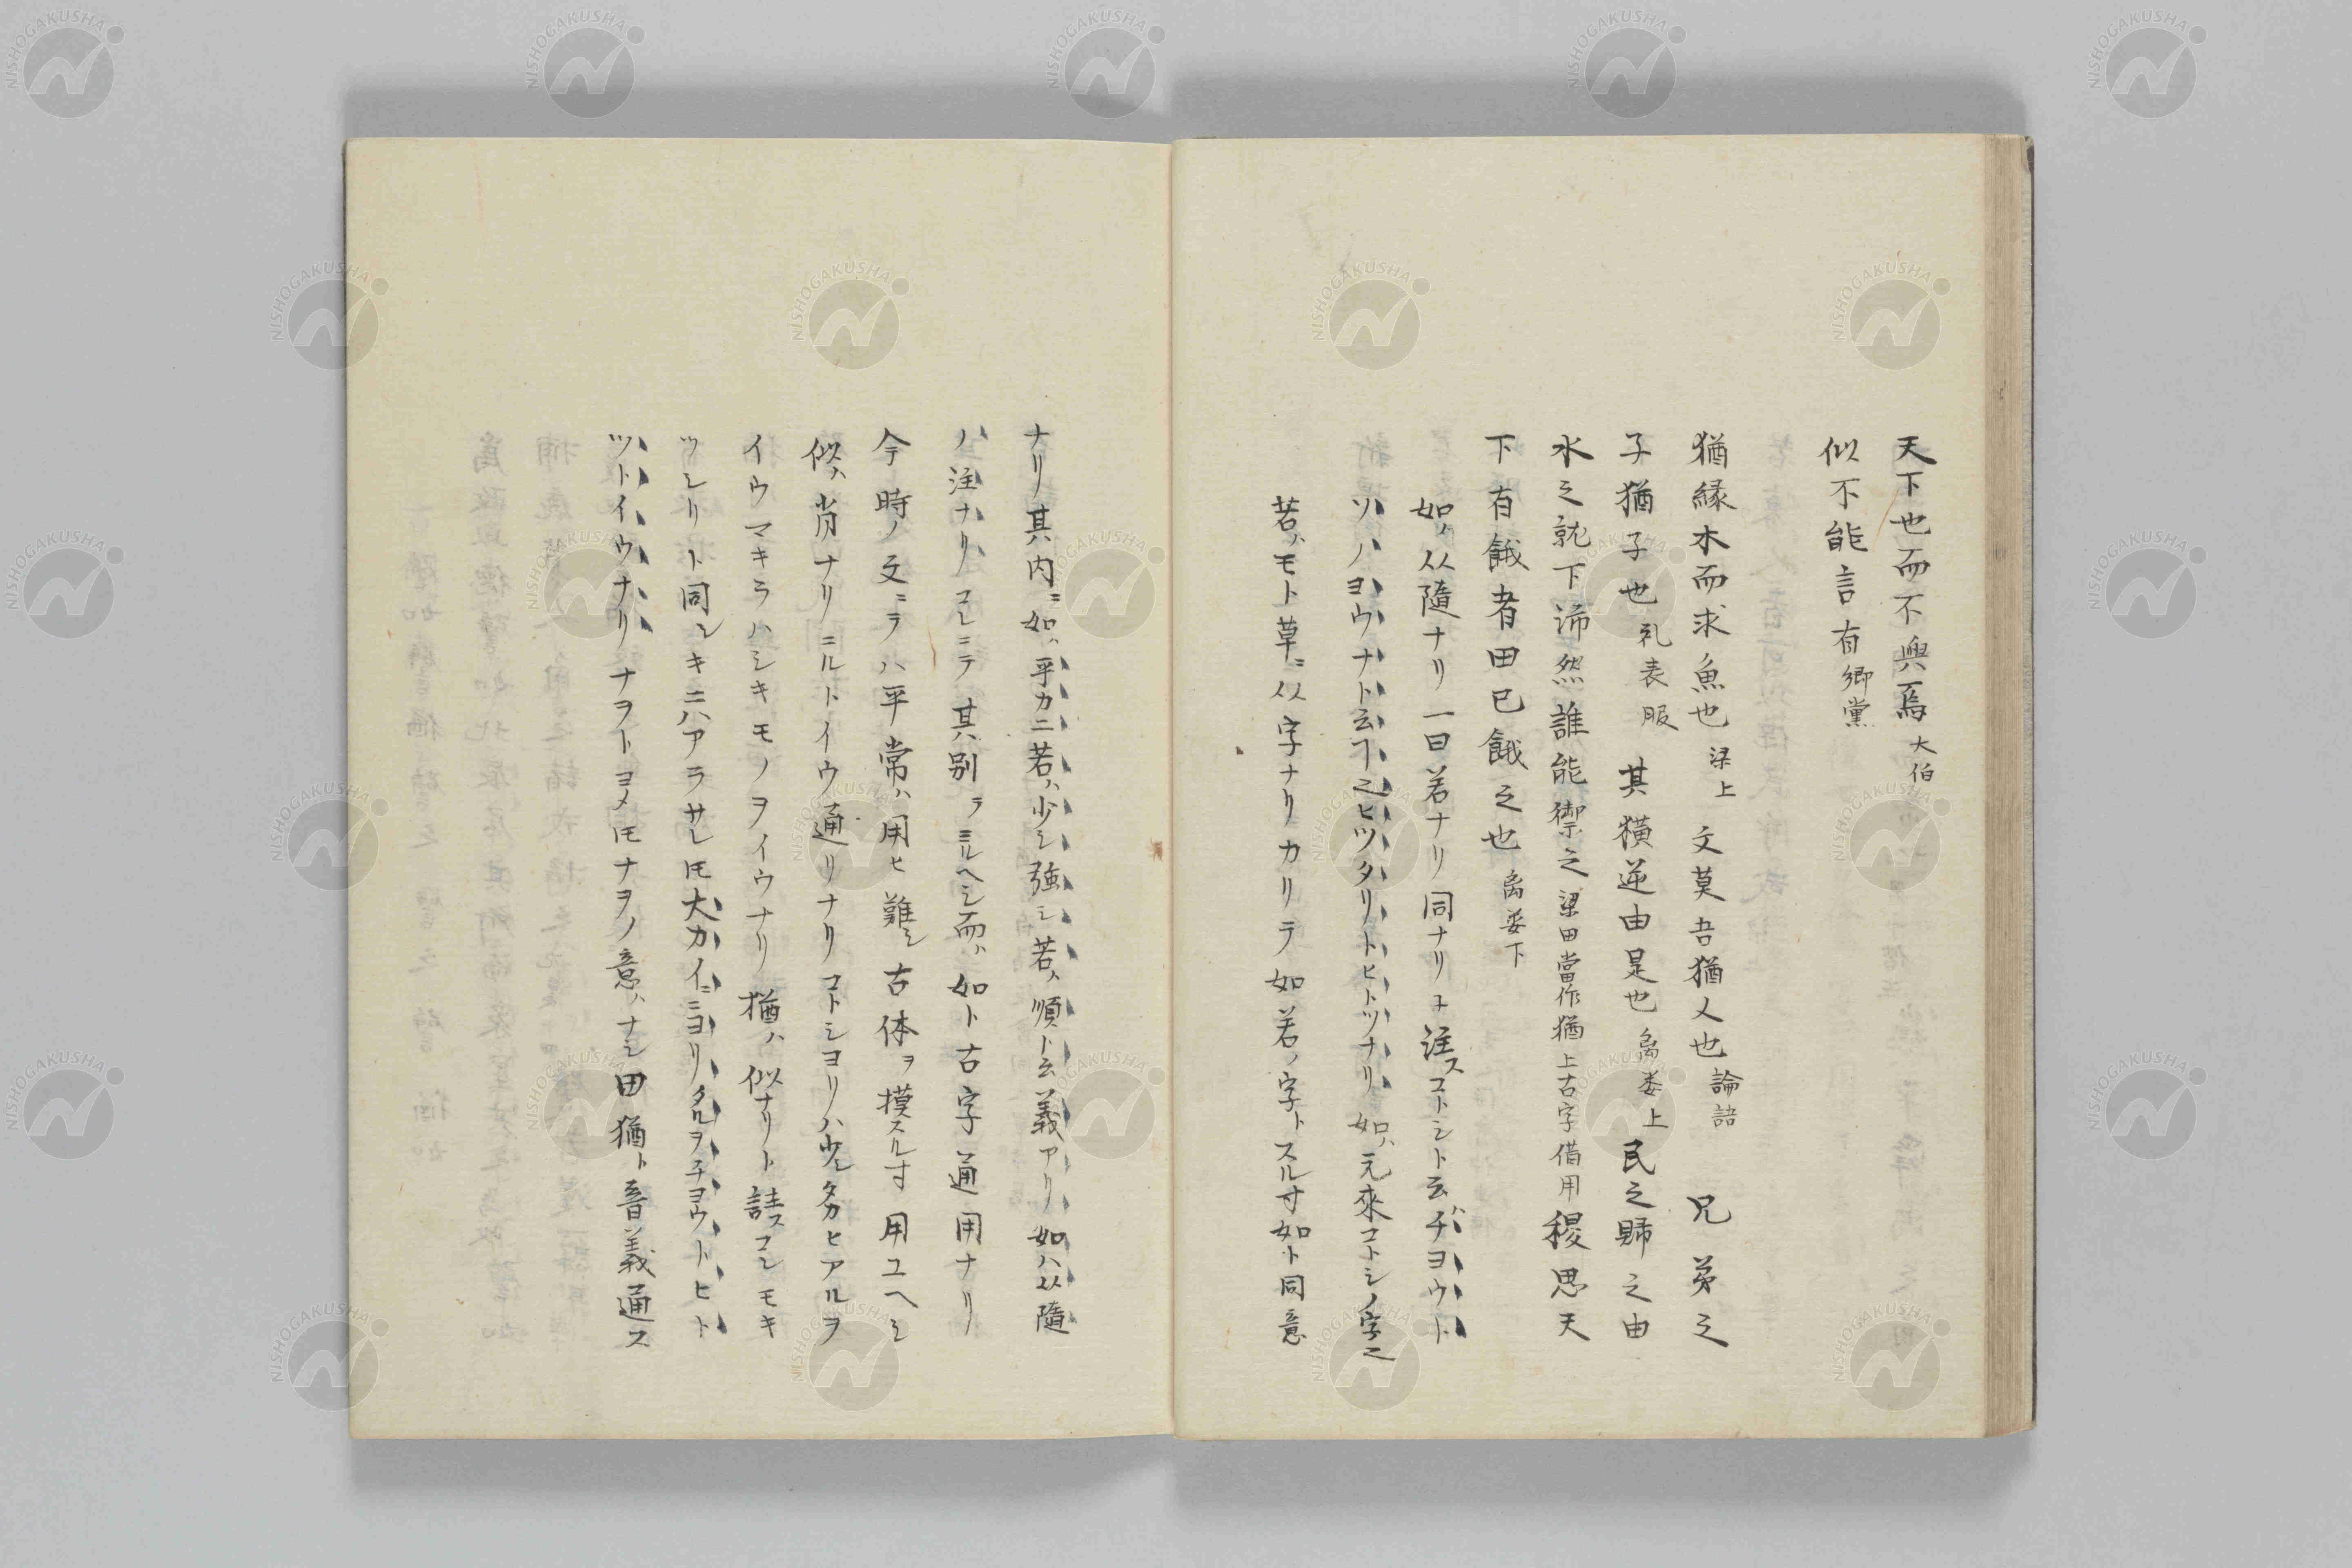 天下也而不與焉大伯
似不能言有郷黨
猶縁木而求魚也梁上 文莫吾猶人也論語 兄弟之
子猶子也礼表服 其横逆由是也离娄上 民之歸之由
水之就下沛然誰能禦之梁田當作猶上古字借用稷思天
下有餓者田已餓之也离娄下
如ハ从隨ナリ一曰若ナリ同ナリヿ注スコトシト云ハチヨウト
ソノヨウナト云ヿ之ヒツタリトヒトツナリ如ハ元來コトシノ字之
若ハモト草ニ从字ナリカリテ如若ノ字トスル寸如ト同意
ナリ其内ニ如ハ平カニ若ハ少シ強シ若ハ順ト云義アリ如ハ从隨
ノ注ナリコレニテ其別ラミルヘシ而ハ如ト古字通用ナリ
今時ノ文ニラハ平常ハ用ヒ難シ古体ヲ摸スル寸用ユヘシ
似ハ肖ナリニルトイウ通リナリコトシヨリハ少シタカヒアルヲ
イウマキラハシキモノヲイウナリ猶ハ似ナリト註スコレモキ
ツシリト同シキニハアラサレ𪜈大カイニヨリタルヲチヨウトヒト
ツトイウナリナヲトヨメ𪜈ナヲノ意ハナシ田猶ト音義通ス
NISHOGAKUSHA